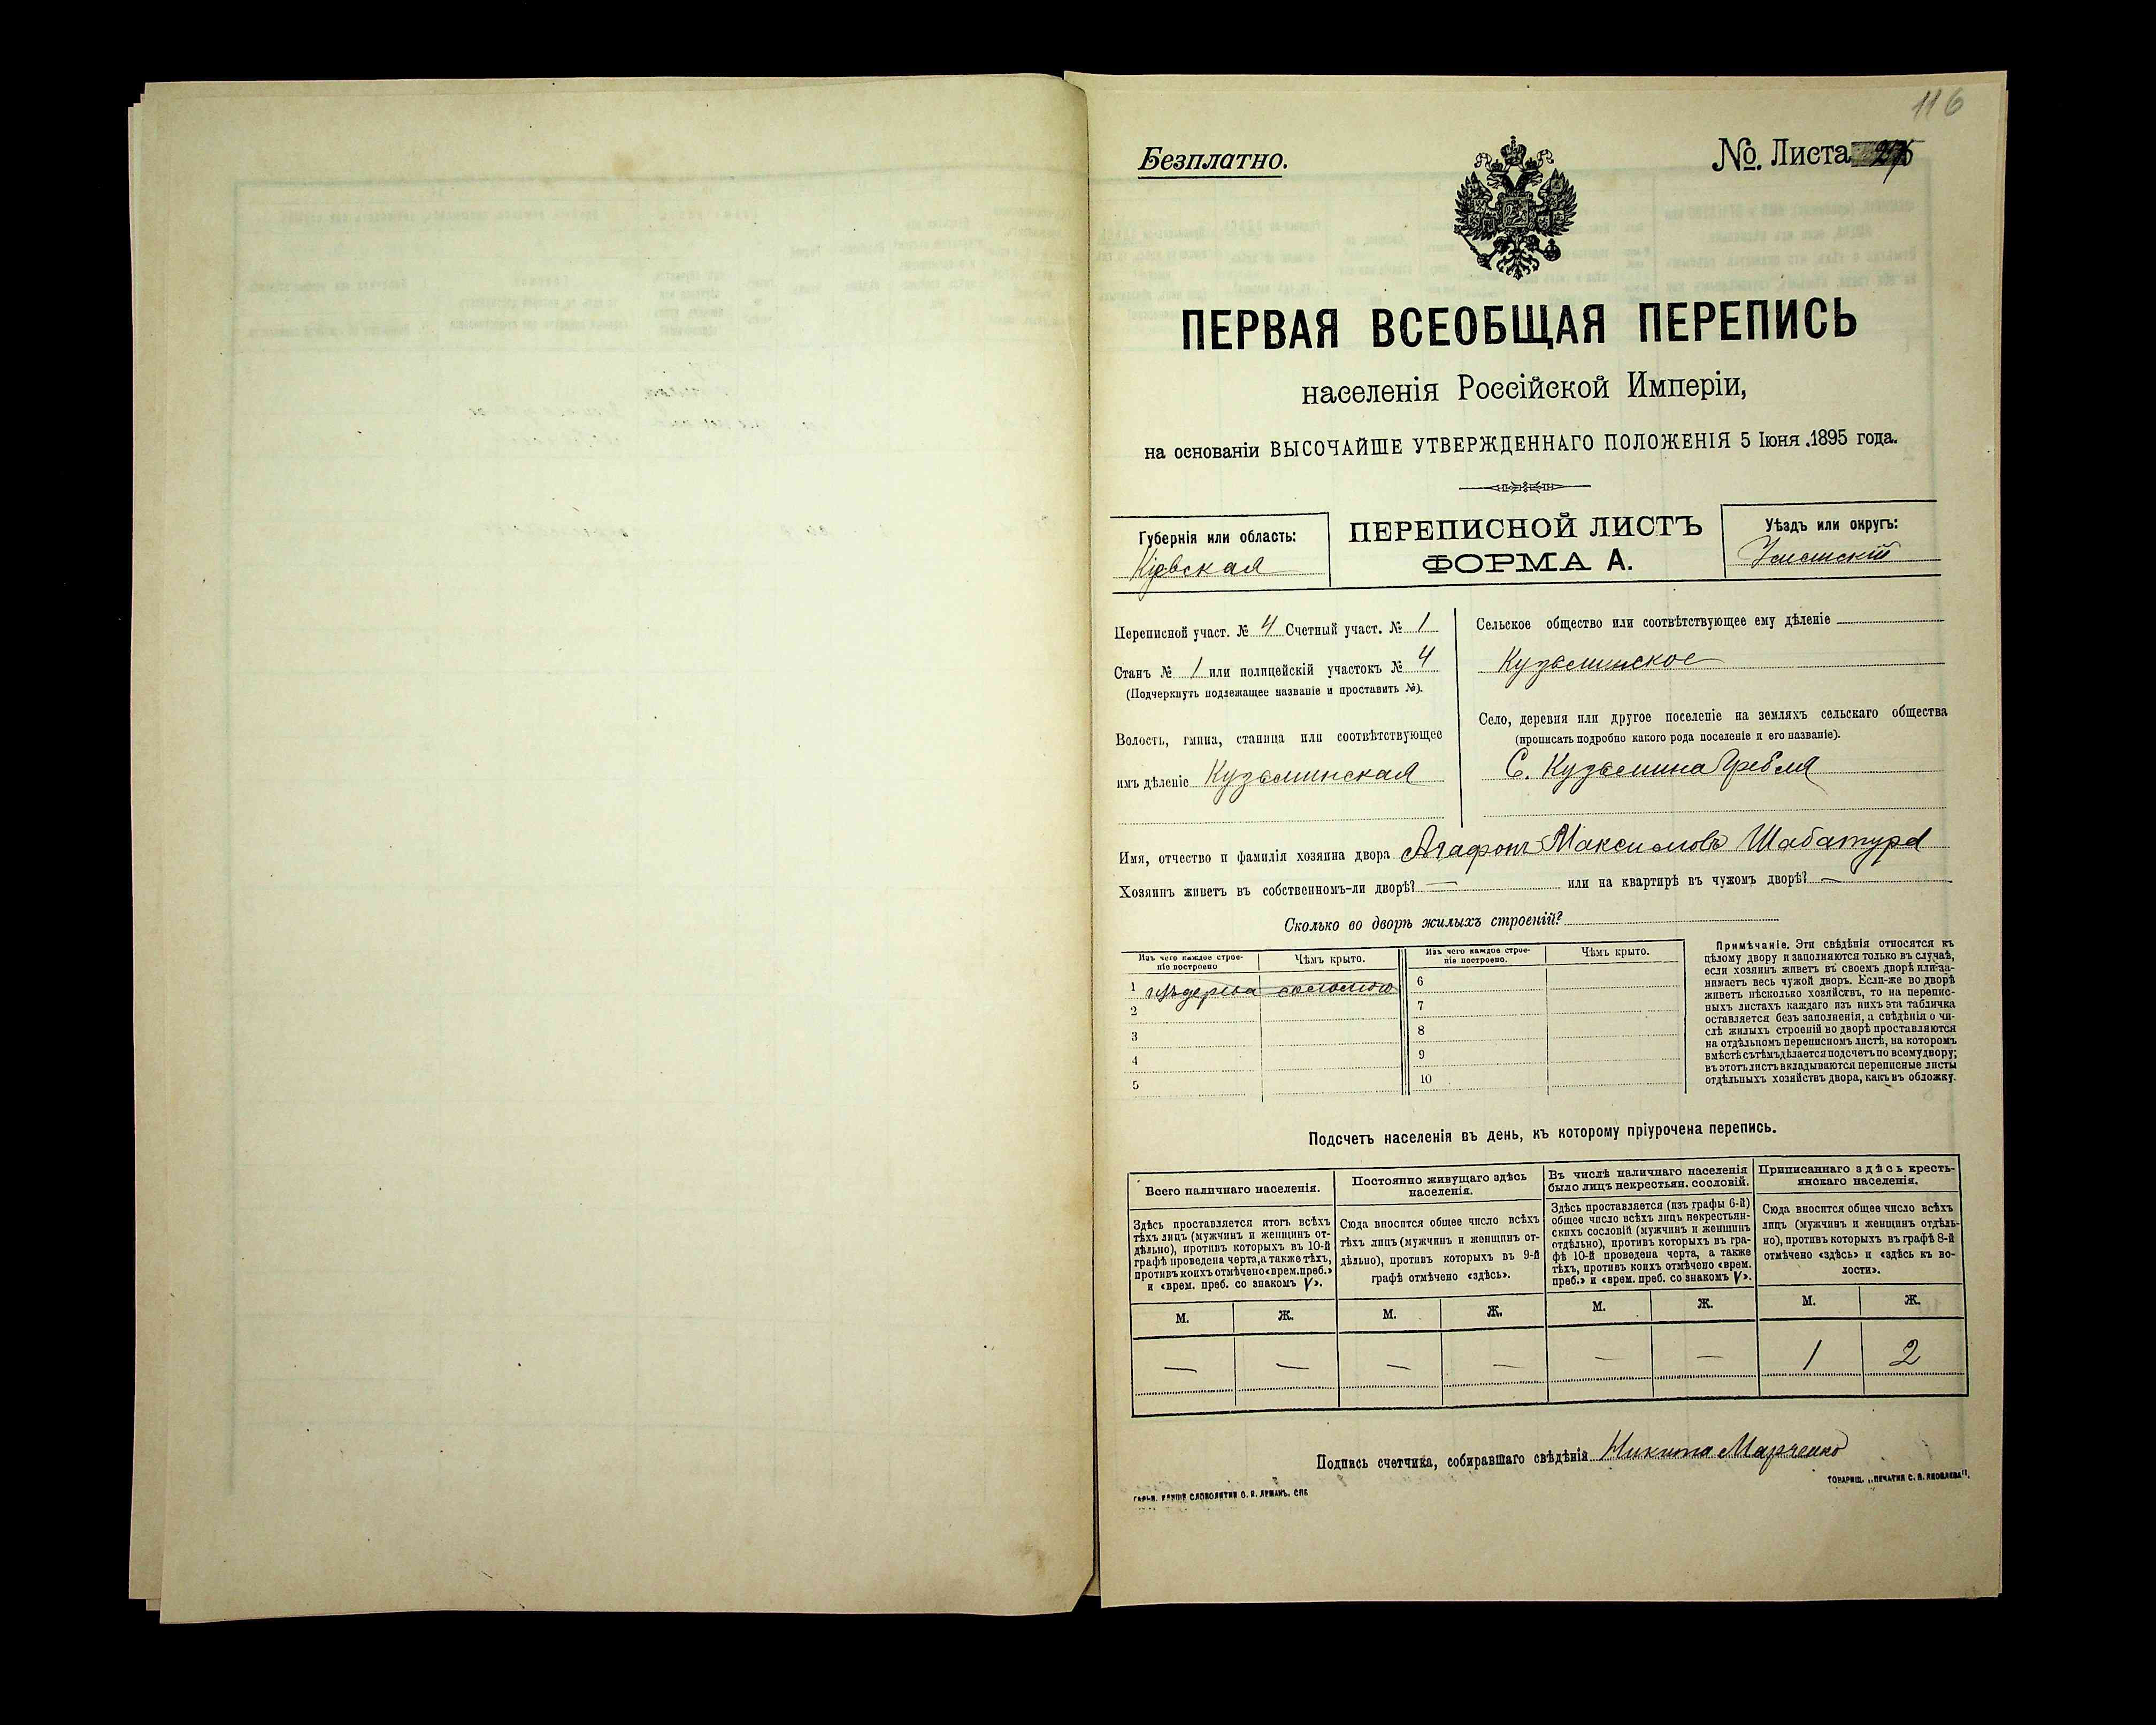 116
Безплатно.
No. Листа
ПЕРВАЯ ВСЕОБЩАЯ ПЕРЕПИСЬ
населенія Россійской Имперіи,
на основаніи ВЫСОЧАЙШЕ УТВЕРЖДЕННАГО ПОЛОЖЕНІЯ 5 Іюня 1895 года.
Губернія или область:
Кіевская
ПЕРЕПИСНОЙ ЛИСТЪ
ФОРМА А.
Уѣздъ или округъ:
Уманскій
Переписной участ. № 4 Счетный участ. № 1
Станъ № 1 или полицейскій участокъ № 4
(Подчеркнуть подлежащее названіе и проставить №).
Волость, гмина, станица или соотвѣтствующее
имъ дѣленіе Кузьминская
Сельское общество или соотвѣтствующее ему дѣленіе
Кузьминское
Село, деревня или другое поселеніе на земляхъ сельскаго общества
(прописать подробно какого рода поселеніе и его названіе).
С. Кузьмина Гребля
Имя, отчество и фамилія хозяина двора Агафонъ Максимовъ Шабатура
Хозяинъ живетъ въ собственномъ-ли дворѣ? — или на квартирѣ въ чужомъ дворѣ? —
Сколько во дворѣ жилыхъ строеній?
Изъ чего каждое строе-
ніе построено
Чѣмъ крыто.
Изъ чего каждое строе-
ніе построено.
Чѣмъ крыто.
1 изъ дерева соломою
2
3
4
5
6
7
8
9
10
Примѣчаніе. Эти свѣдѣнія относятся къ
цѣлому двору и заполняются только въ случаѣ,
если хозяинъ живетъ въ своемъ дворѣ или за-
нимаетъ весь чужой дворъ. Если-же во дворѣ
живетъ нѣсколько хозяйствъ, то на перепис-
ныхъ листахъ каждаго изъ нихъ эта табличка
оставляется безъ заполненія, а свѣдѣнія о чи-
слѣ жилыхъ строеній во дворѣ проставляются
на отдѣльномъ переписномъ листѣ, на которомъ
вмѣстѣ съ тѣмъ дѣлается подсчетъ по всему двору;
въ этотъ листъ вкладываются переписные листы
отдѣльныхъ хозяйствъ двора, какъ въ обложку.
Подсчетъ населенія въ день, къ которому пріурочена перепись.
Всего наличнаго населенія.
Здѣсь проставляется итогъ всѣхъ
тѣхъ лицъ (мужчинъ и женщинъ от-
дѣльно), противъ которыхъ въ 10-й
графѣ проведена черта, а также тѣхъ,
противъ коихъ отмѣчено «врем. преб.»
и «врем. преб. со знакомъ V».
Постоянно живущаго здѣсь
населенія.
Сюда вносится общее число всѣхъ
тѣхъ лицъ (мужчинъ и женщинъ от-
дѣльно), противъ которыхъ въ 9-й
графѣ отмѣчено «здѣсь».
Въ числѣ наличнаго населенія
было лицъ некрестьян. сословій.
Здѣсь проставляется (изъ графы 6-й)
общее число всѣхъ лицъ некрестьян-
скихъ сословій (мужчинъ и женщинъ
отдѣльно), противъ которыхъ въ гра-
фѣ 10-й проведена черта, а также
тѣхъ, противъ коихъ отмѣчено «врем.
преб.» и «врем. преб. со знакомъ V».
Приписаннаго здѣсь кресть-
янскаго населенія.
Сюда вносится общее число всѣхъ
лицъ (мужчинъ и женщинъ отдѣль-
но), противъ которыхъ въ графѣ 8-й
отмѣчено «здѣсь» и «здѣсь къ во-
лости».
М. Ж. М. Ж. М. Ж. М. Ж.
— — — — — — 1 2
Подпись счетчика, собиравшаго свѣдѣнія Никита Марченко
СЛОВОЛИТНИ О. И. ЛЕМАНЪ. СПБ
ТОВАРИЩ. „ПЕЧАТНЯ С. П. ЯКОВЛЕВА“.